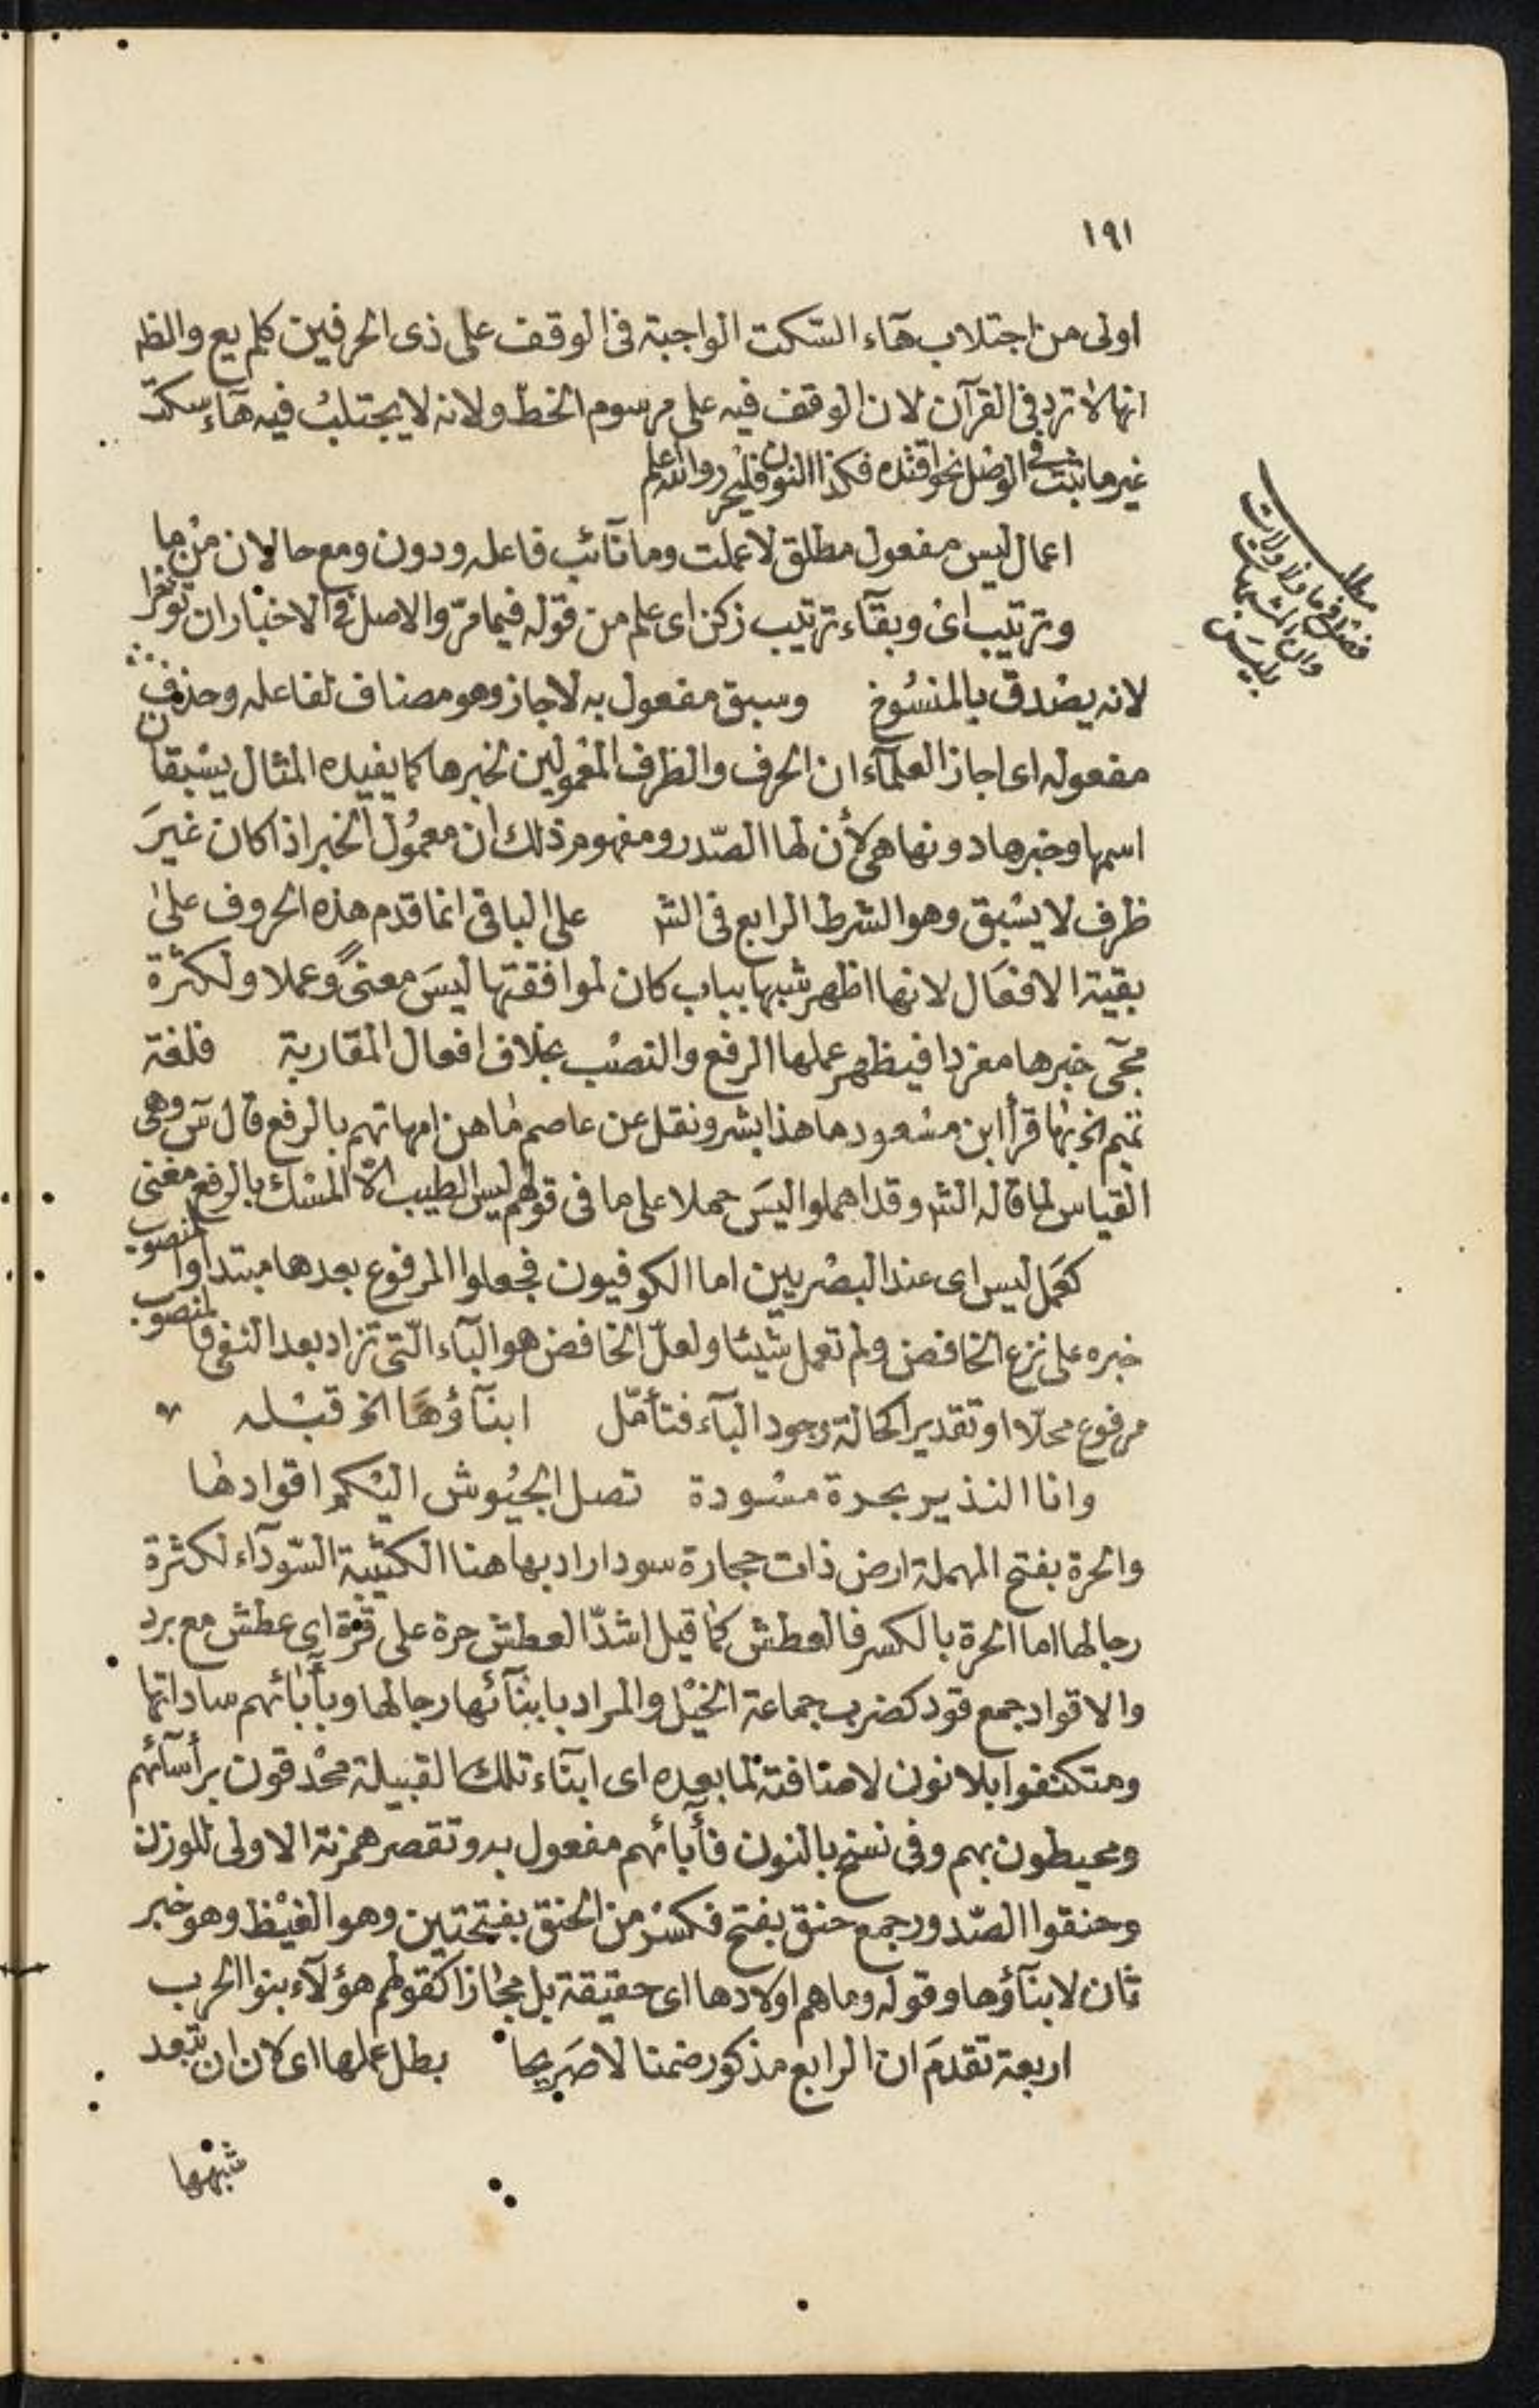 ١٩١
اولى من اجتلاب هآء السّكت الواجبة فى الوقف على ذى الحرفين كلم يع والظ
انها لا ترد فى القرآن لان الوقف فيه على مرسوم الخطّ ولانه لا يجتلبُ فيه هآء سكت
غير ما ثبت فى الوصل نحو اقتده فكذا النون فليحرر والله اعلم
اعمال ليس مفعول مطلق لاعملت وما نآئب فاعله ودون ومع حالان من ما
وترتيب اى وبقآء ترتيب زكن اى علم من قوله فيما مرّ والاصل فى الاخبار ان تؤخرا
لانه يصْدق بالمنسُوخ وسبق مفعول به لاجاز وهو مضاف لفاعله وحذف
مفعوله اى اجاز العلمآء ان الحرف والظرف المعْمولين لخبرها كما يفيده المثال يسْبقان
اسمها وخبرها دونها هى لأن لها الصّدر ومفهوم ذلك ان معمُول الخبر اذا كان غيرَ
ظرف لا يسْبق وهو الشرط الرابع فى الشر على الباقى انما قدم هذه الحروف على
بقية الافعَال لانها اظهر شبها بباب كان لموافقتها ليسَ معنىً وعملا ولكثرة
مجئ خبرها مفردا فيظهر عملها الرفع والنصْب بخلاف افعال المقاربة فلغة
تميم الخ بها قرأ ابن مسْعود ما هذا بشر ونقل عن عاصم ما هن امهاتهم بالرفع قال سٓ وهى
القياس لما قاله الشر وقد اهملوا ليسَ حملا على ما فى قولهم ليس الطيب الّا المسْك بالرفع مغنى
كعَمل ليس اى عند البصْريين اما الكوفيون فجعلوا المرفوع بعدها مبتدا والمنصوب
خبره على نزع الخافض ولم تعمل شيئا ولعلّ الخافض هو البآء الّتى تزاد بعد النفى فالمنصوب
مرفوع محلّا او تقديرا كحالة وجود البآء فتأمّل ابنآؤهَا الخ قبْله
وانا النذير بحرة مسْودة تصل الجيُوش اليْكم اقوادها
والحرة بفتح المهملة ارض ذات حجارة سود اراد بها هنا الكتيْبة السّودآء لكثرة
رجالها اما الحرة بالكسر فالعطش كما قيل اشدّ العطش حرة على قرة اى عطش مع برد
والاقواد جمع قود كضرب جماعة الخيْل والمراد بابنآئها رجالها وبأبائهم ساداتها
ومتكنفوا بلا نون لاضافته لما بعده اى ابنآء تلك القبيلة محْدقون برأسآئهم
ومحيطون بهم وفى نسخ بالنون فأبائهم مفعول به وتقصر همزته الاولى للوزن
وحنقوا الصّدور جمع حنق بفتح فكسْر من الحنق بفتحتين وهو الغيْظ وهو خبر
ثان لابنآؤها وقوله وما هم اولادها اى حقيقة بل مجازا كقولهم هؤلآء بنوا الحرب
اربعة تقدمَ ان الرابع مذكور ضمنا لا صَريحا بطل عملها اى لان ان تبعد
شبهها
مطلب
فصل فى ما ولا ولات
وان المشبهات
بليسَ